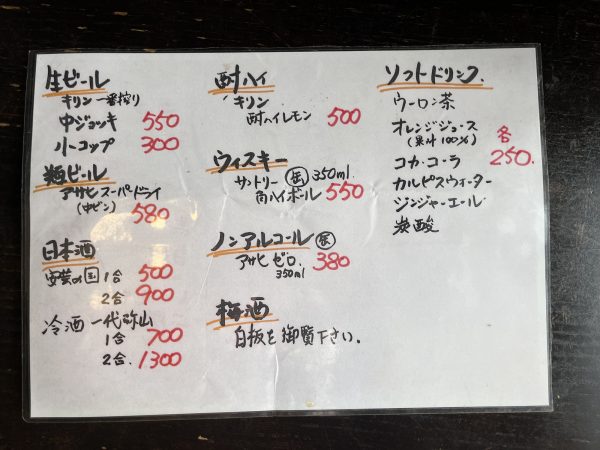 生ビール
キリン一番搾り
中ジョッキ 550
小コップ 300
瓶ビール
アサヒスーパードライ
(中ビン) 580
日本酒
安芸の国 1合 500
2合 900
冷酒 一代弥山
1合 700
2合. 1300
酎ハイ
キリン
酎ハイレモン 500
ウィスキー
サントリー 缶 350ml.
角ハイボール 550
ノンアルコール 缶
アサヒゼロ. 380
350ml
梅酒
白板を御覧下さい。
ソフトドリンク.
ウーロン茶
オレンジジュース
(果汁100%)
各
コカ・コーラ 250.
カルピスウォーター
ジンジャーエール
炭酸